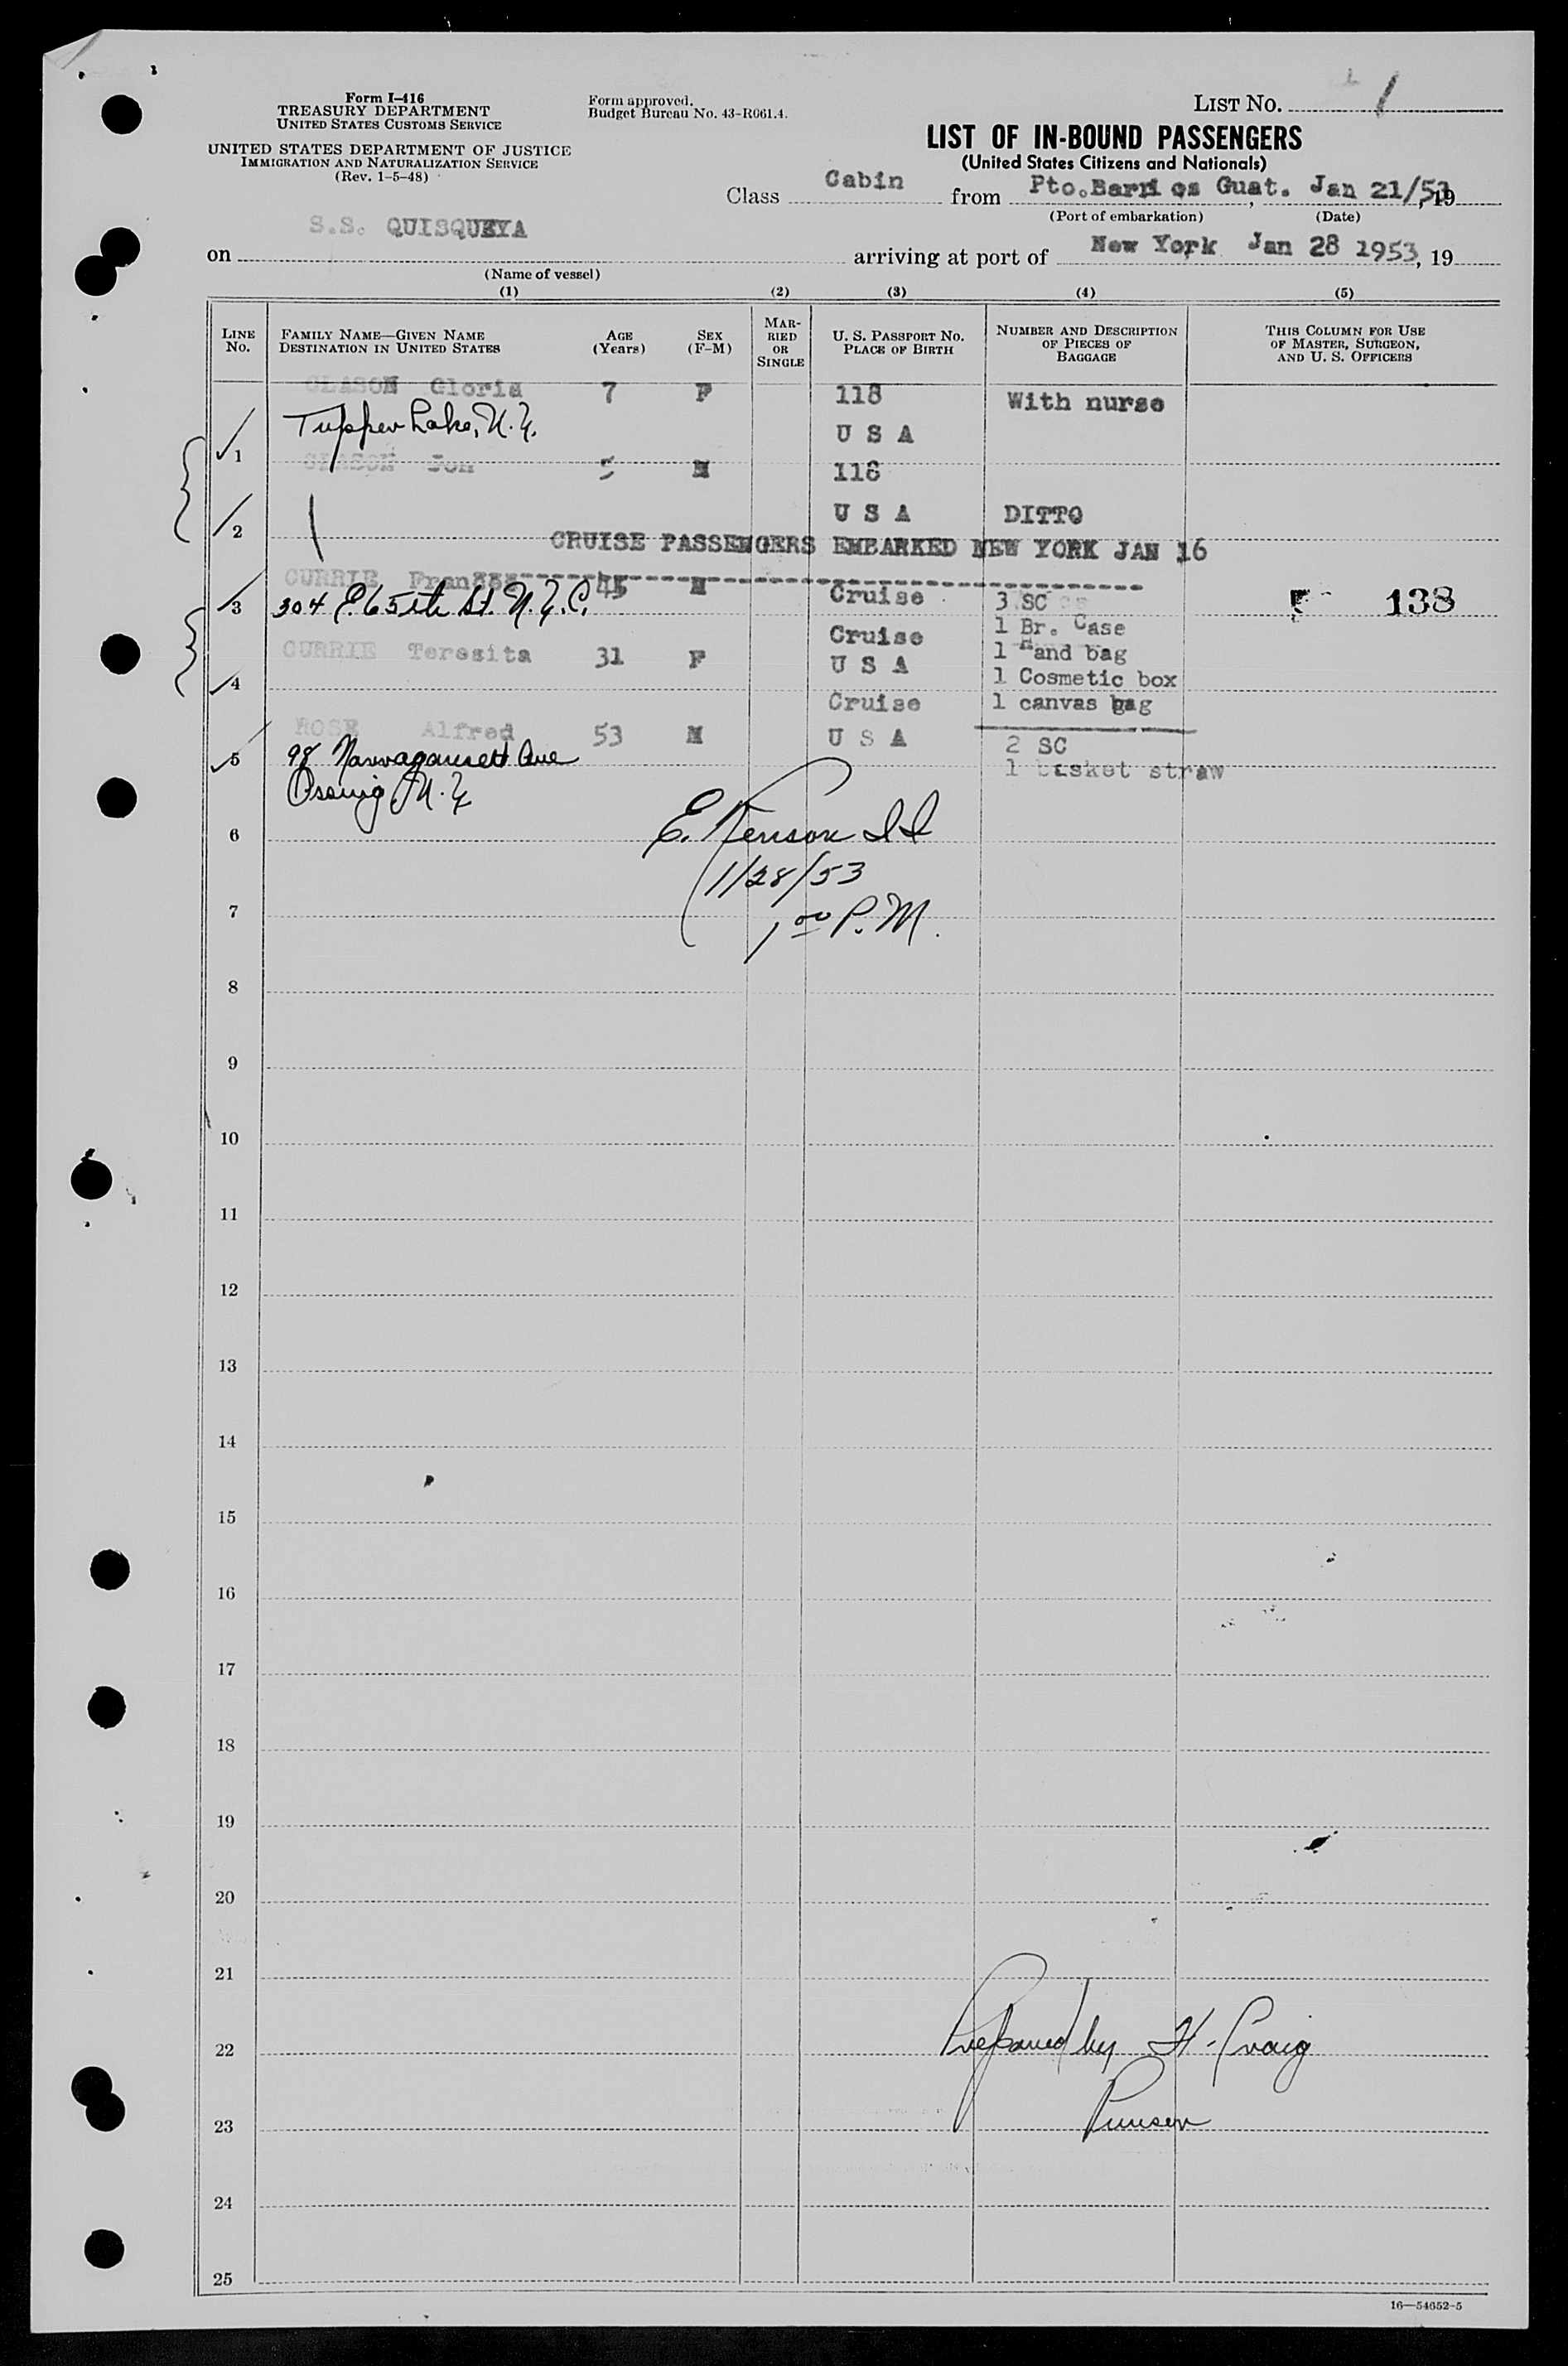 Form I-416
TREASURY DEPARTMENT
UNITED STATES CUSTOMS SERVICE
UNITED STATES DEPARTMENT OF JUSTICE
IMMIGRATION AND NATURALIZATION SERVICE
(Rev. 1-5-48)
Form approved.
Budget Bureau No. 43-R061.4.
LIST NO. 1
LIST OF IN-BOUND PASSENGERS
(United States Citizens and Nationals)
Class Cabin from Pto.Barrios Guat. Jan 21/53, 19
(Port of embarkation) (Date)
on S.S. QUISQUEYA arriving at port of New York Jan 28 1953, 19
(Name of vessel)
(1) (2) (3) (4) (5)
LINE NO. FAMILY NAME—GIVEN NAME DESTINATION IN UNITED STATES AGE (Years) SEX (F-M) MARRIED OR SINGLE U. S. PASSPORT NO. PLACE OF BIRTH NUMBER AND DESCRIPTION OF PIECES OF BAGGAGE THIS COLUMN FOR USE OF MASTER, SURGEON, AND U. S. OFFICERS
Gloria 7 F 118 With nurse
1 Tupper Lake, N.Y. U S A
Jon 5 M 118
2 U S A DITTO
CRUISE PASSENGERS EMBARKED NEW YORK JAN 16
CURRIE 45 M Cruise 3 SC 138
3 304 E. 65th St. N.Y.C.
Cruise 1 Br. Case
CURRIE Teresita 31 F U S A 1 Hand bag
4 1 Cosmetic box
Cruise 1 canvas bag
ROSE Alfred 53 M U S A 2 SC
5 98 Narragansett Ave 1 basket straw
Ossinig, N.Y.
6 E.
7 1/28/53
1 00 P.M.
8
9
10
11
12
13
14
15
16
17
18
19
20
21
22 Prepared by H. Craig
23 Purser
24
25
16—54652-5